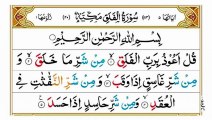 سُورَةُ الْفَلَقِ مَكِّيَّةٌ
بِسْمِ اللهِ الرَّحْمٰنِ الرَّحِيْمِ
قُلْ اَعُوْذُ بِرَبِّ الْفَلَقِ ۙ مِنْ شَرِّ مَا خَلَقَ ۙ
وَمِنْ شَرِّ غَاسِقٍ اِذَا وَقَبَ ۙ وَمِنْ شَرِّ النَّفّٰثٰتِ فِي
الْعُقَدِ ۙ وَمِنْ شَرِّ حَاسِدٍ اِذَا حَسَدَ